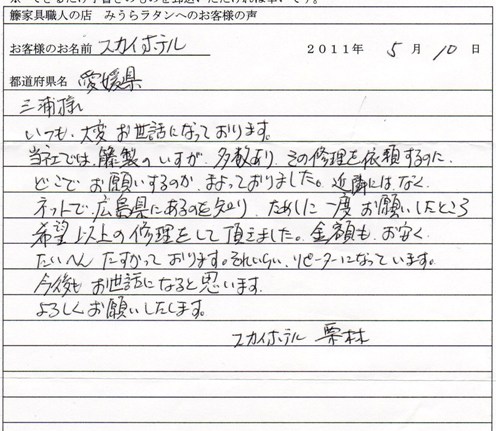 籐家具職人の店　みうらラタンへのお客様の声
お客様のお名前　スカイホテル　2011年 5月 10日
都道府県名　愛媛県
三浦様
いつも、大変お世話になっております。
当社では、籐製のいすが、多数あり、その修理を依頼するのに、
どこでお願いするのか、まよっておりました。近隣にはなく、
ネットで、広島県にあるのを知り、ためしに一度お願いしたところ
希望以上の修理をして頂きました。金額も、お安く、
たいへん たすかっております。それいらい、リピーターになっています。
今後も お世話になると思います。
よろしくお願いしたします。
スカイホテル 栗林